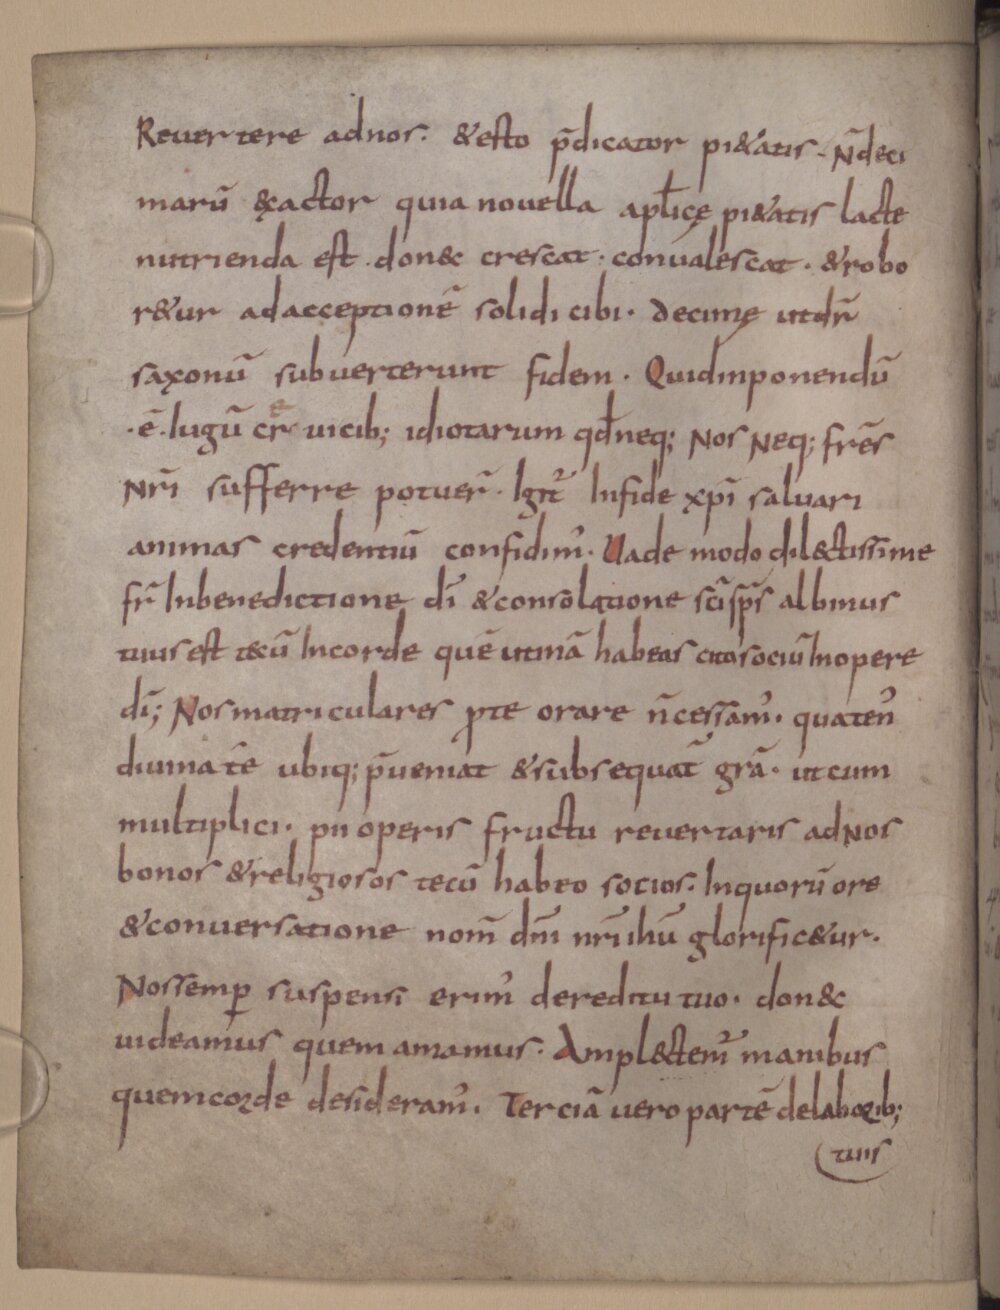 Reuertere adnos. &esto p̄dicator pi&atis. N̄deci
marū &actor quia nouella apl̄icę pi&atis lacte
nutrienda est. don&c crescat. conualescat. &robo
r&ur adacceptionē solidi cibi. Decimę utdr̄
saxonū subuerterunt fidem. Quidinponendū
.ē. Iugū cr̄ uicib; idiotarum qđneq; Nos Neq; fr̄es
Nr̄i sufferre potuer̄. Igit᷑ Infide xp̄i saluari
animas credentiū confidim᾽. Uade modo dil&ctissime
fr̄ Inbenedictione dī &consolatione sc̄isp̄s albinus
tuus est tecū Incorde quē utinā habeas citosociū Inopere
dī; Nosmatriculares ꝓte orare n̄cessam᾽. quaten᾽
diuina tē ubiq; p̄ueniat &subsequat᷑ grā. utcum
multiplici. pii operis fructu reuertaris adNos
bonos &religiosos tecū habeo socios. Inquorū ore
&conuersatione nom̄ dm̄ nr̄i ihū glorific&ur.
Nossemꝑ suspensi erim᾽ dereditu tuo. don&c
uideamus quem amamus. Ampl&ctem᾽ manibus
quemcorde desideram᾽. Terciā uero partē delaborib;
tuis